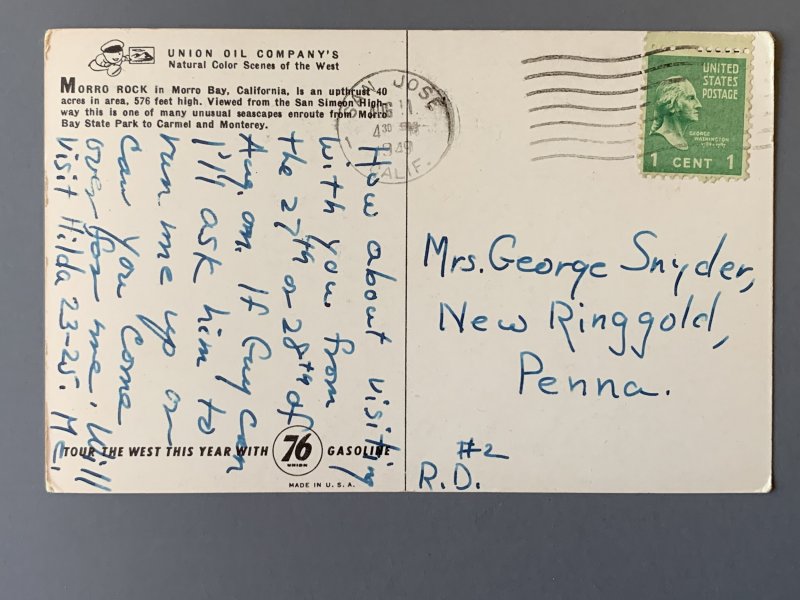 UNION OIL COMPANY'S
Natural Color Scenes of the West
MORRO ROCK in Morro Bay, California, is an upthrust 40
acres in area, 576 feet high. Viewed from the San Simeon High-
way this is one of many unusual seascapes enroute from Morro
Bay State Park to Carmel and Monterey.
How about visiting
with you from
the 27th or 28th of
Aug. on. If Guy can
I'll ask him to
run me up or
can you come
over for me. Will
visit Hilda 23-25. Me.
TOUR THE WEST THIS YEAR WITH 76 UNION GASOLINE
MADE IN U. S. A.
SAN JOSE
AUG 11
4 30 PM
1949
CALIF.
1
UNITED
STATES
POSTAGE
GEORGE
WASHINGTON
1 CENT 1
Mrs. George Snyder,
New Ringgold,
Penna.
#2
R.D.